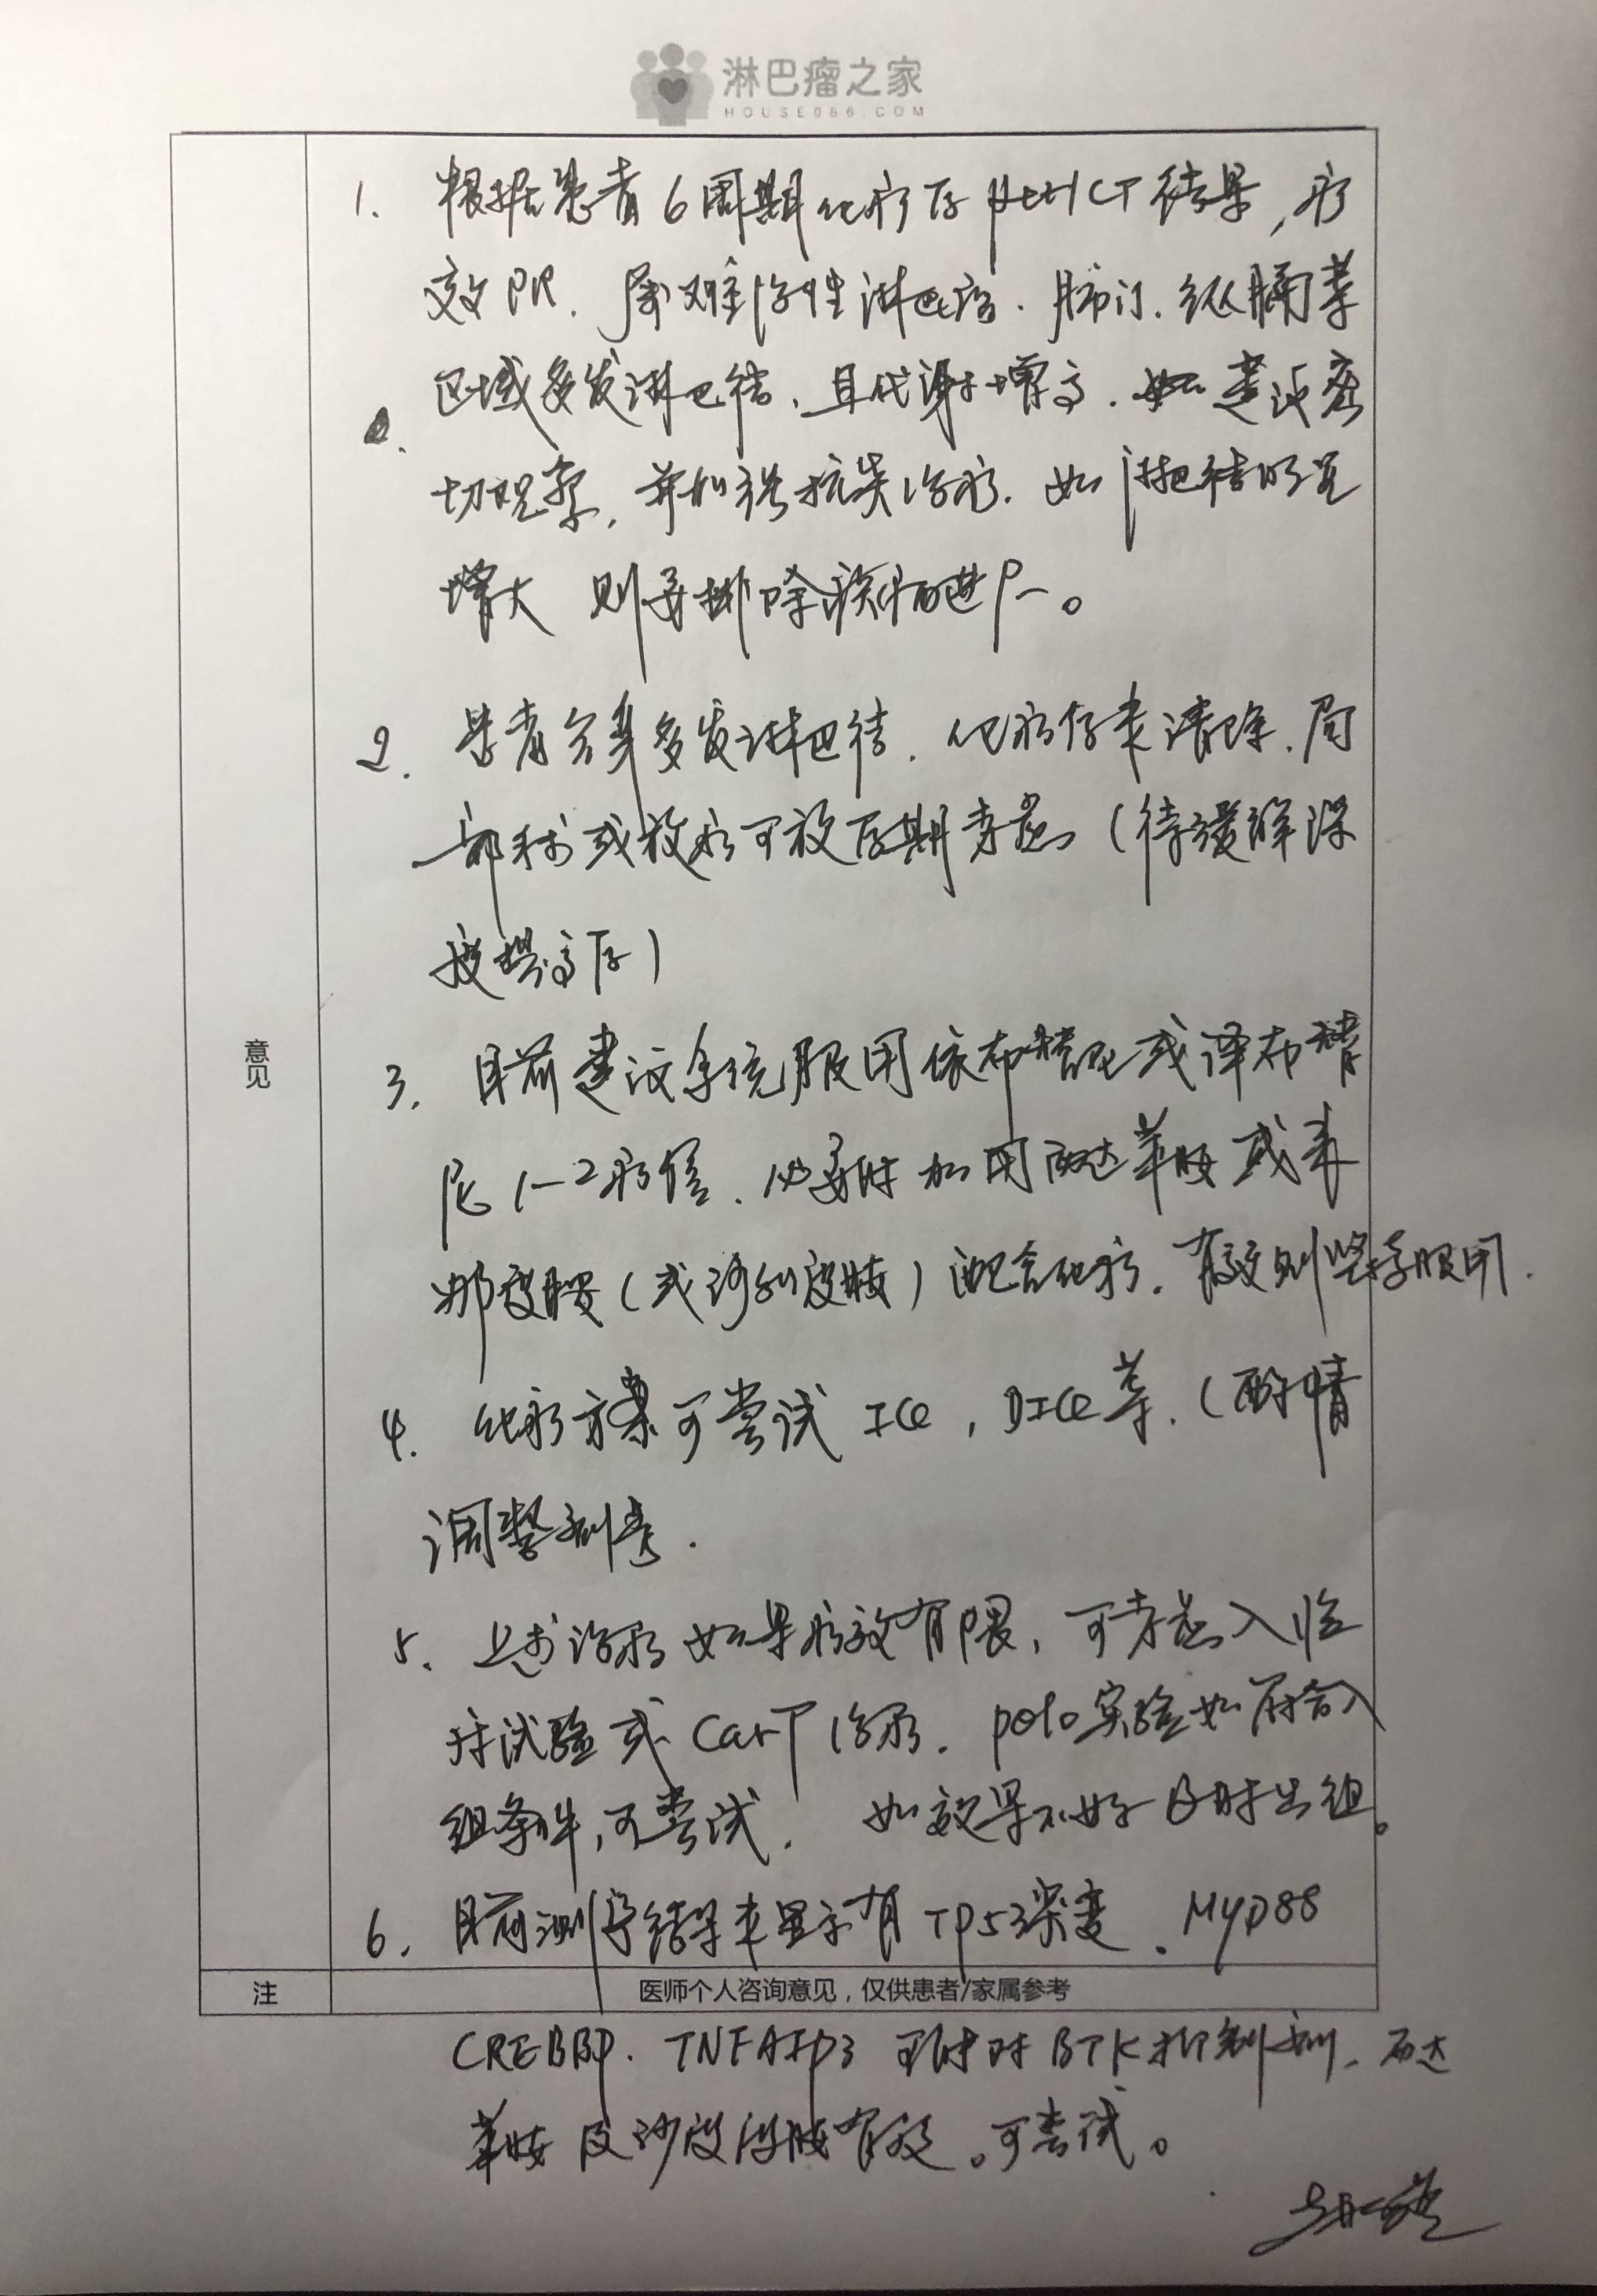 淋巴瘤之家
HOUSE086.COM
意见
1. 根据患者6周期化疗后PETCT结果,疗
效PR. 属难治性淋巴瘤. 肺门.纵膈等
区域多发淋巴结、且代谢增高. 建议密
切观察, 并加强抗炎治疗. 如淋巴结明显
增大 则要排除疾病进
2. 患者全身多发淋巴结. 化疗后未清除. 局
部 或放疗可放后期考虑 (待缓解深
度提高后)
3. 目前建议系统服用依布替尼或泽布替
尼1-2疗程. 必要时加用西达苯胺或来
那度胺(或沙利度胺)配合化疗. 有效则坚持服用.
4. 化疗方案可尝试ICE, DICE等. (酌情
调整剂量.
5. 上述治疗如果疗效有限, 可考虑入临
床试验或CarT治疗. polo实验如符合入
组条件,可尝试. 如效果不好及时出组。
6. 目前测序结果未显示有TP53突变. MYD88
注
医师个人咨询意见,仅供患者/家属参考
CREBBP. TNFAIP3 可能对BTK抑制剂、西达
苯胺及沙度 胺有效。可尝试。